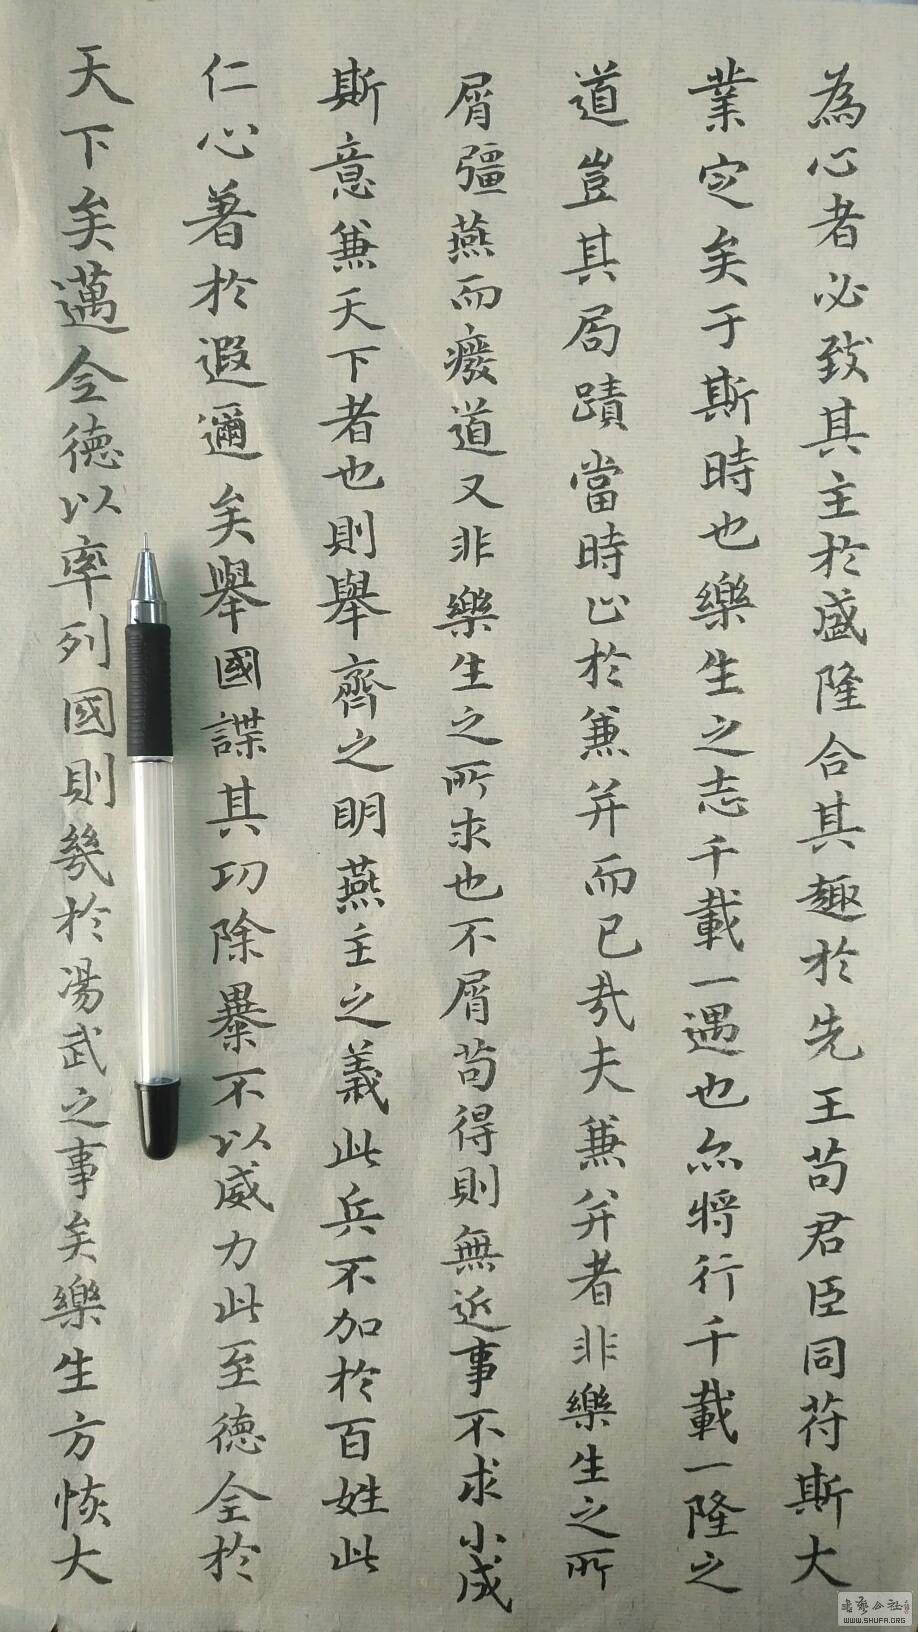 為心者必致其主於盛隆合其趣於先王苟君臣同苻斯大
業定矣于斯時也樂生之志千載一遇也亦將行千載一隆之
道豈其局蹟當時止於兼并而已㢤夫兼并者非樂生之所
屑彊燕而癈道又非樂生之所求也不屑苟得則無近事不求小成
斯意兼天下者也則舉齊之明燕主之義此兵不加於百姓此
仁心著於遐邇矣舉國諜其功除暴不以威力此至德全於
天下矣邁全德以率列國則幾於湯武之事矣樂生方恢大
書藝公社
WWW.SHUFA.ORG